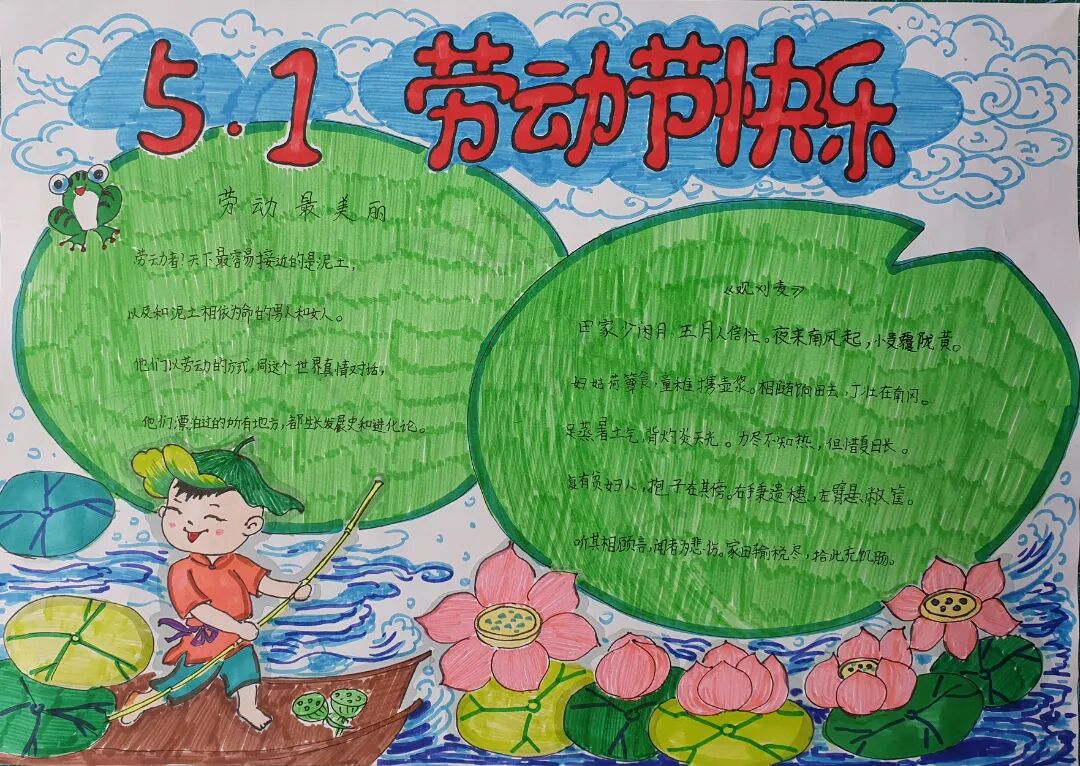 5.1 劳动节快乐
劳动最美丽
劳动者!天下最容易接近的是泥土,
以及和泥土相依为命的男人和女人。
他们以劳动的方式,同这个世界真情对话,
他们漂泊过的所有地方,都生长发展史和进化论。
《观刈麦》
田家少闲月 五月人倍忙。夜来南风起,小麦覆陇黄。
妇姑荷箪食,童稚携壶浆。相随饷田去,丁壮在南冈。
足蒸暑土气,背灼炎天光。力尽不知热,但惜夏日长。
复有贫妇人,抱子在其傍。右手秉遗穗,左臂悬敝筐。
听其相顾言,闻者为悲伤。家田输税尽,拾此充饥肠。